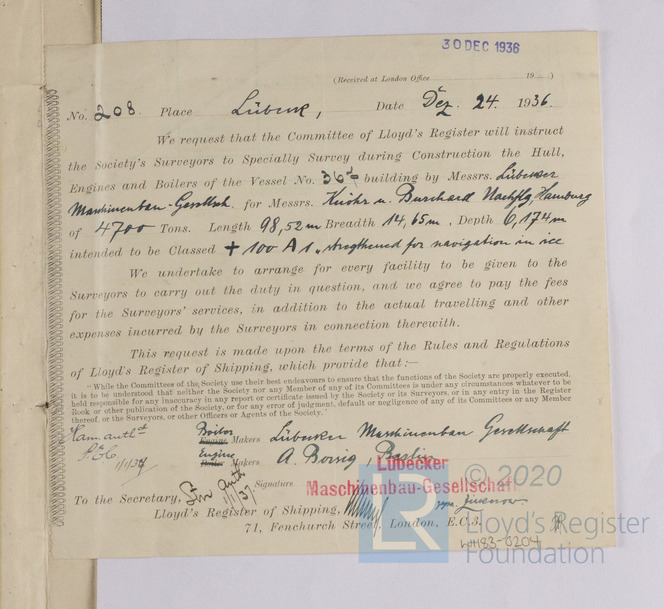 30 DEC 1936
(Received at London Office 19 )
No. 208. Place Lübeck, Date Dez. 24. 1936.
We request that the Committee of Lloyd's Register will instruct
the Society's Surveyors to Specially Survey during Construction the Hull,
Engines and Boilers of the Vessel No. 367 building by Messrs. Lübecker
Maschinenbau-Gesellsch. for Messrs. Knöhr u. Burchard Nachflg, Hamburg
of 4700 Tons. Length 98,52m Breadth 14,65m, Depth 6,174m
intended to be Classed + 100 A 1 „stregthened for navigation in ice
We undertake to arrange for every facility to be given to the
Surveyors to carry out the duty in question, and we agree to pay the fees
for the Surveyors' services, in addition to the actual travelling and other
expenses incurred by the Surveyors in connection therewith.
This request is made upon the terms of the Rules and Regulations
of Lloyd's Register of Shipping, which provide that:—
"While the Committees of the Society use their best endeavours to ensure that the functions of the Society are properly executed,
it is to be understood that neither the Society nor any Member of any of its Committees is under any circumstances whatever to be
held responsible for any inaccuracy in any report or certificate issued by the Society or its Surveyors, or in any entry in the Register
Book or other publication of the Society, or for any error of judgment, default or negligence of any of its Committees or any Member
thereof, or the Surveyors, or other Officers or Agents of the Society."
Boiler
Engine Makers Lübecker Maschinenbau Gesellschaft
Engine
Boiler Makers A. Borsig, Berlin
1/1/37
Signature Lübecker
Maschinenbau-Gesellschaft
1/1/37
To the Secretary,
Lloyd's Register of Shipping,
ppa.
71, Fenchurch Street, London, E.C.3.
LR
© 2020
Lloyd's Register
Foundation
W1183-0204